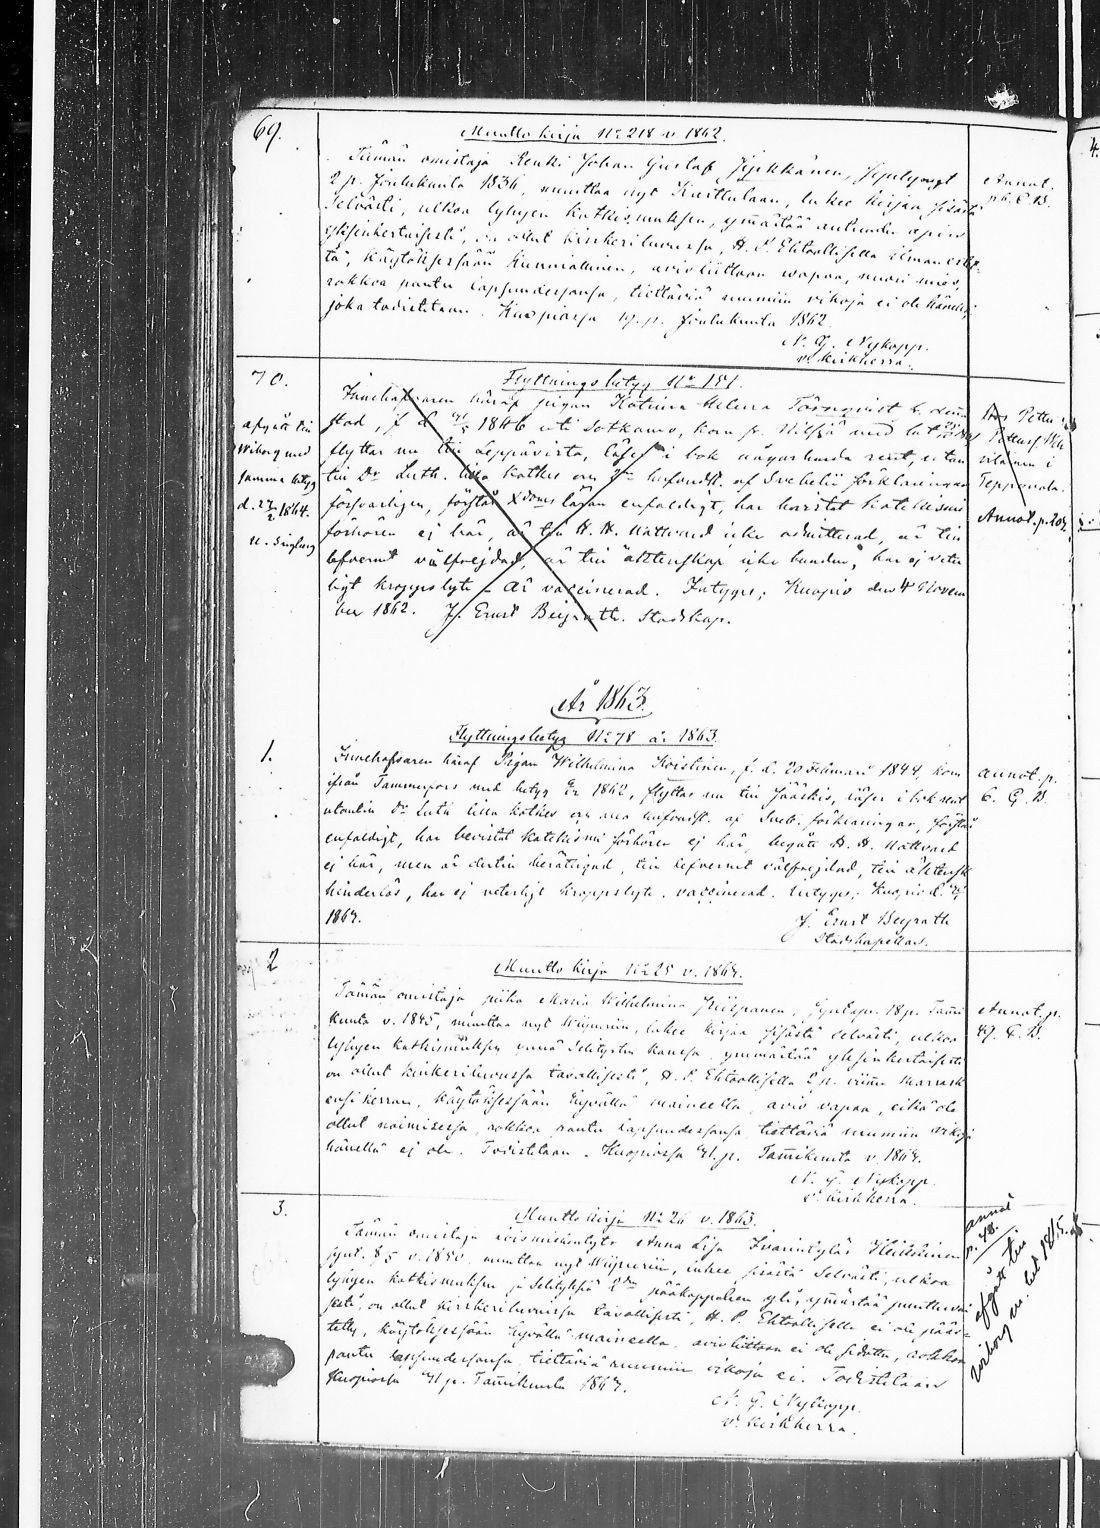 69.
Muutto kirja No 218 v 1862.
Tämän omistaja Renki Johan Gustaf
2 p. Joulukuuta 1836, muuttaa nyt Kuittulaan, lukee kirjaa sisältä
selvästi, ulkoa lyhyen katkismuksen, ymmärtää autuuden opin
yksinkertaisesti, on ollut kinkeriluvussa, H. P. Ehtoollisella ilman estet-
tä, käytöksessään kunniallinen, avioliittoon vapaa, nuori mies,
rokkoa pantu lapsuudessansa, tiettäviä muumiin vikoja ei ole hänellä
joka todistetaan. Kuopiossa 19. p. Joulukuuta 1862
N. G. Nykopp.
v. kirkherra.
Annot.
p. 6. E. B.
70.
Flyttningsbetyg No 181.
Innehafvaren häraf pigan Katrina Helena Törnqvist
stad, f d. 1846 uti Sotkamo, kom fr. Nilsiä med
flyttar nu till Leppävirta, läser i bok någorlunda rent, utan
till Dr Luth. lilla katkes och hufvudst. af Svebelii förklaringar
försvarligen, förstår Xdoms läran enfaldigt, har bevistat Katekismi
förhören ej här, är till H. H. Nattvard icke admitterad, är till
lefvernet välfrejdad, är till äktenskap icke bunden, har ej veter
ligt kroppslyte. Är vaccinerad. Intygas; Kuopio den 4 Novem
ber 1862. J. Ernst Beijrath. Stadskap.
afgått till
Wiborg med
samma betyg
d. 27/2 1864.
Petter
Petterss.
i
Leppävirta.
Annot. p. 204.
År 1863.
1.
Flyttningsbetyg No 78 år 1863.
Innehafvaren häraf Pigan Wilhelmina Koistinen, f. d. 20 Februari 1844, kom
ifrån Tammerfors med betyg 1862, flyttar nu till Jääskis, läser i bok rent
utantill Dr Luth lilla katkes och alla hufvudst. af Sveb. förklaringar, förstår
enfaldigt, har bevistat katekismi förhören ej här, begått H. H. Nattvard
ej här, men är dertill berättigad, till lefvernet välfrejdad, till äktensk
hinderlös, har ej veterligt kroppslyte. vaccinerad. Intygas; Kuopio d.
1863.
J. Ernst Beijrath
Stadskapellan.
annot. p.
6. G. B.
2
Muutto kirja No 25 v. 1863.
Tämän omistaja piika Maria Wilhelmina syntynyt 18 p. Tammi
kuuta v. 1845, muuttaa nyt Wiipuriin, lukee kirjaa sisältä selvästi, ulkoa
lyhyen katkismuksen ynnä selitysten kanssa, ymmärtää yksinkertaisesti
on ollut kinkeriluvussa tavallisesti, H. P. Ehtoollisella 2 p. viime Marrask
ensi kerran, käytöksessään hyvällä maineella, avio vapaa, eikä ole
ollut naimisessa, rokkoa pantu lapsuudessansa tiettäviä muumiin vikoja
hänellä ej ole. Todistetaan. Kuopiossa 21. p. Tammikuuta v. 1863.
N. G. Nykopp.
v. kirkherra.
Annot. p.
49. E. B.
3.
Muutto kirja No 26 v. 1863.
Tämän omistaja Anna Lisa Iivarintytär Heikkinen
synt. v. 1850. muuttaa nyt Wiipuriin, lukee sisältä selvästi, ulkoa
lyhyen katkismuksen ja selityksiä pääkappaleen yli, ymmärtää puuttuvai
sesti, on ollut kinkeriluvussa tavallisesti, H. P. Ehtoollisella ei ole pääs-
tetty, käytöksessään hyvällä maineella, avioliittoon ei ole sidottu, rokkoa
pantu lapsuudessansa, tiettäviä muumiin vikoja ei. Todistetaan
Kuopiossa 21 p. Tammikuuta 1863.
N. G. Nykopp.
v. kirkherra.
annot
p. 48.
afgått till
Wiborg m. bet 1865.